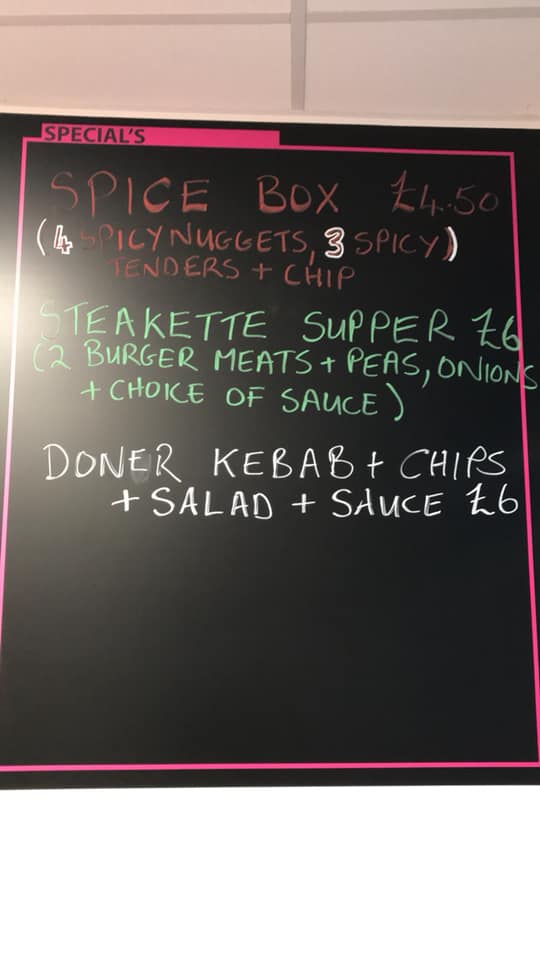 SPECIAL'S
SPICE BOX £4.50
(4 SPICY NUGGETS, 3 SPICY)
TENDERS + CHIP
STEAKETTE SUPPER £6
(2 BURGER MEATS + PEAS, ONIONS
+ CHOICE OF SAUCE)
DONER KEBAB + CHIPS
+ SALAD + SAUCE £6